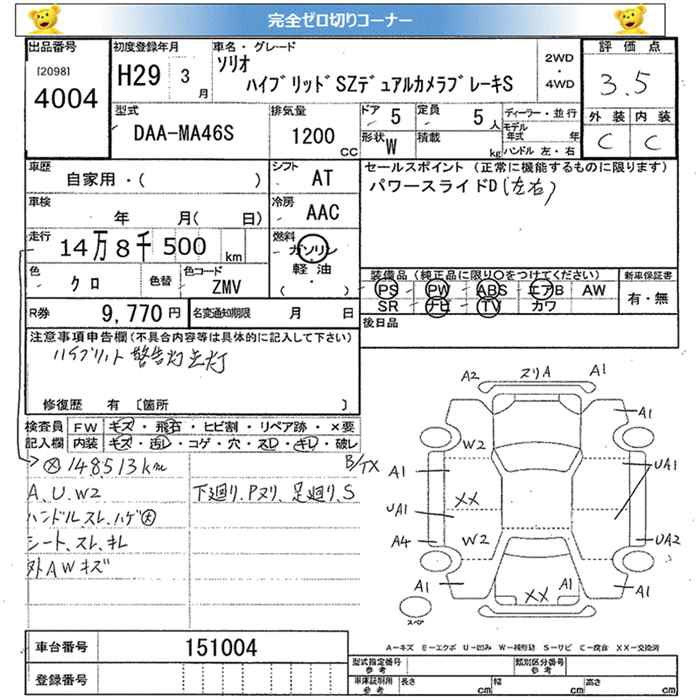 完全ゼロ切りコーナー
出品番号 初度登録年月 車名・グレード 2WD ・ 4WD 評価点
[2098] 4004 H29 3月 ソリオ
ハイブリッドSZデュアルカメラブレーキS 3.5
型式 排気量 ドア 5 定員 5人 ディーラー・並行 外装 内装
DAA-MA46S 1200 CC 形状 W 積載 kg モデル年式 年 C C
ハンドル 左・右
車歴 シフト セールスポイント (正常に機能するものに限ります)
自家用・( ) AT パワースライドD(左右)
車検 冷房
年 月( 日) AAC
走行 燃料
14万8千500km ガソリン
軽油
・( )
色 色替 色コード 装備品(純正品に限り○をつけてください) 新車保証書
クロ ZMV PS PW ABS エアB AW 有・無
R券 9,770円 名変通知期限 月 日 SR ナビ TV カワ
注意事項申告欄(不具合内容等は具体的に記入して下さい) 後日品
ハイブリット警告灯点灯
修復歴 有 〔箇所 〕
検査員 FW キズ・飛石・ヒビ割・リペア跡・×要
記入欄 内装 キズ・汚レ・コゲ・穴・スレ・キレ・破レ
148513km B/TX
A、U、W2 下廻り、Pヌリ、足廻り、S
ハンドルスレ、ハゲ大
シート、スレ、キレ
外AWキズ
A2 ズリA A1
A1
W2
A1 UA1
XX
UA1
A4 W2 UA2
A1 XX A1 A1
スペア
A－キズ E－エクボ U－凹み W－補修跡 S－サビ C－腐食 XX－交換済
車台番号 151004
登録番号
型式指定番号 参考 類別区分番号 参考
車庫証明用 参考 長さ cm 幅 cm 高さ cm